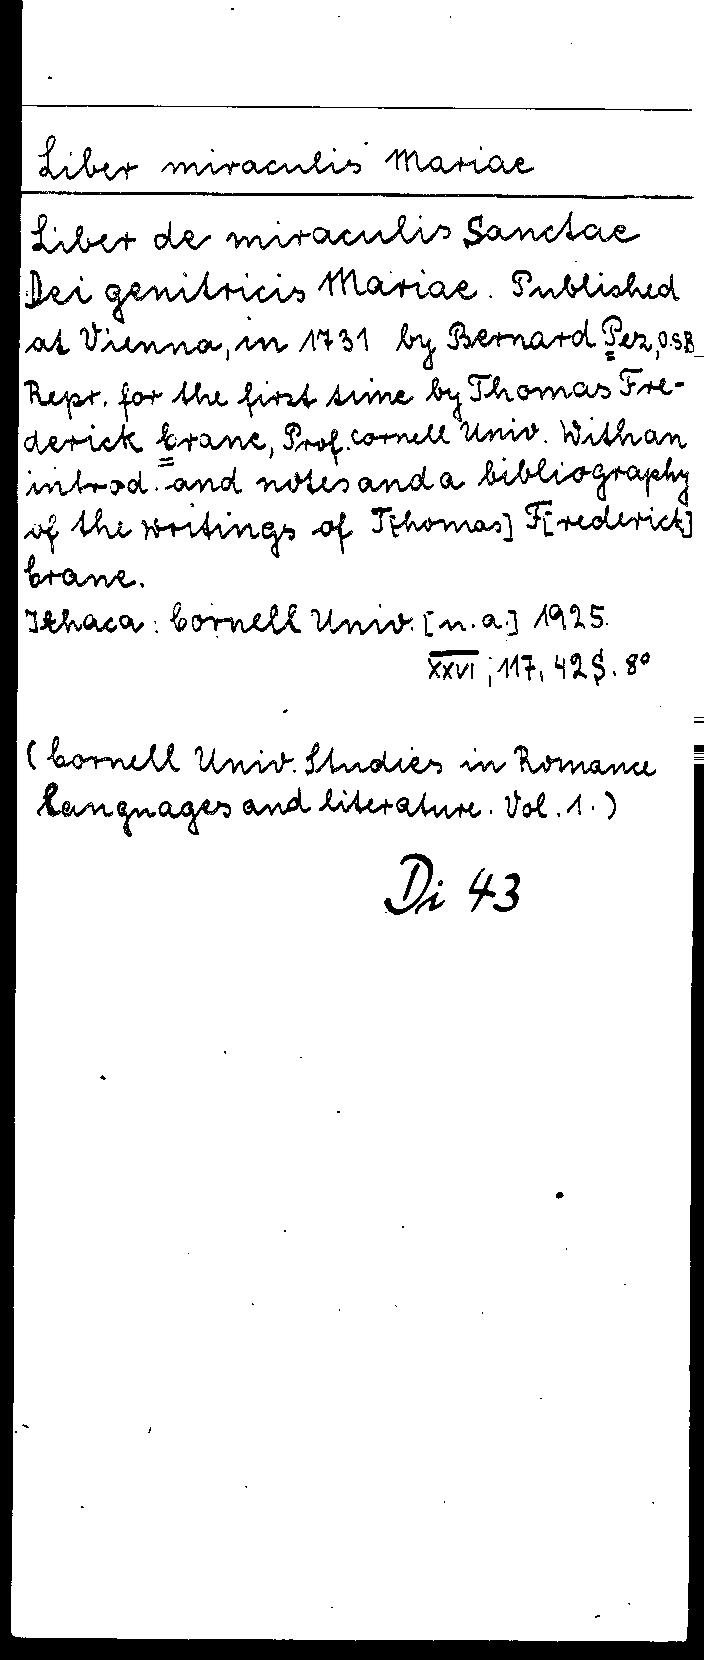 Liber miraculis Mariae
Liber de miraculis Sanctae
Dei genitricis Mariae. Published
at Vienna, in 1731 by Bernard Pez, O.S.B.
Repr. for the first time by Thomas Fre-
derick Crane, Prof. Cornell Univ. With an
introd. and notes and a bibliography
of the writings of T[homas] F[rederick]
Crane.
Ithaca: Cornell Univ. [u.a.] 1925.
XXVI, 117, 42 S. 8°
(Cornell Univ. Studies in Romance
Languages and literature. Vol. 1.)
Di 43